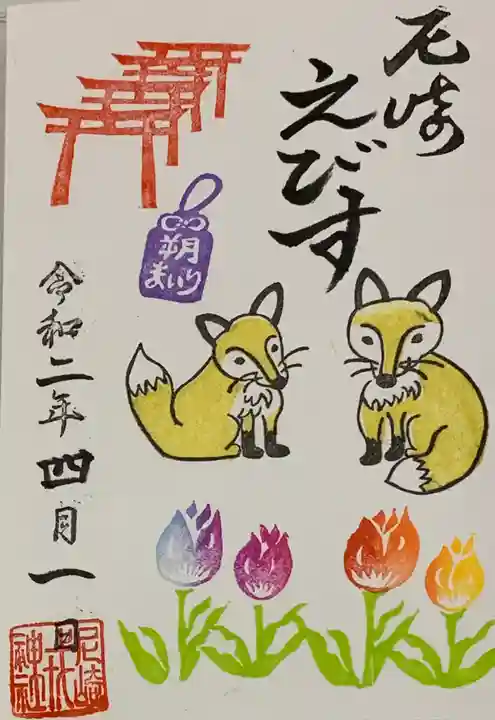 尼崎
えびす
朔
まいり
令和二年四月一日
尼崎
戎
神社